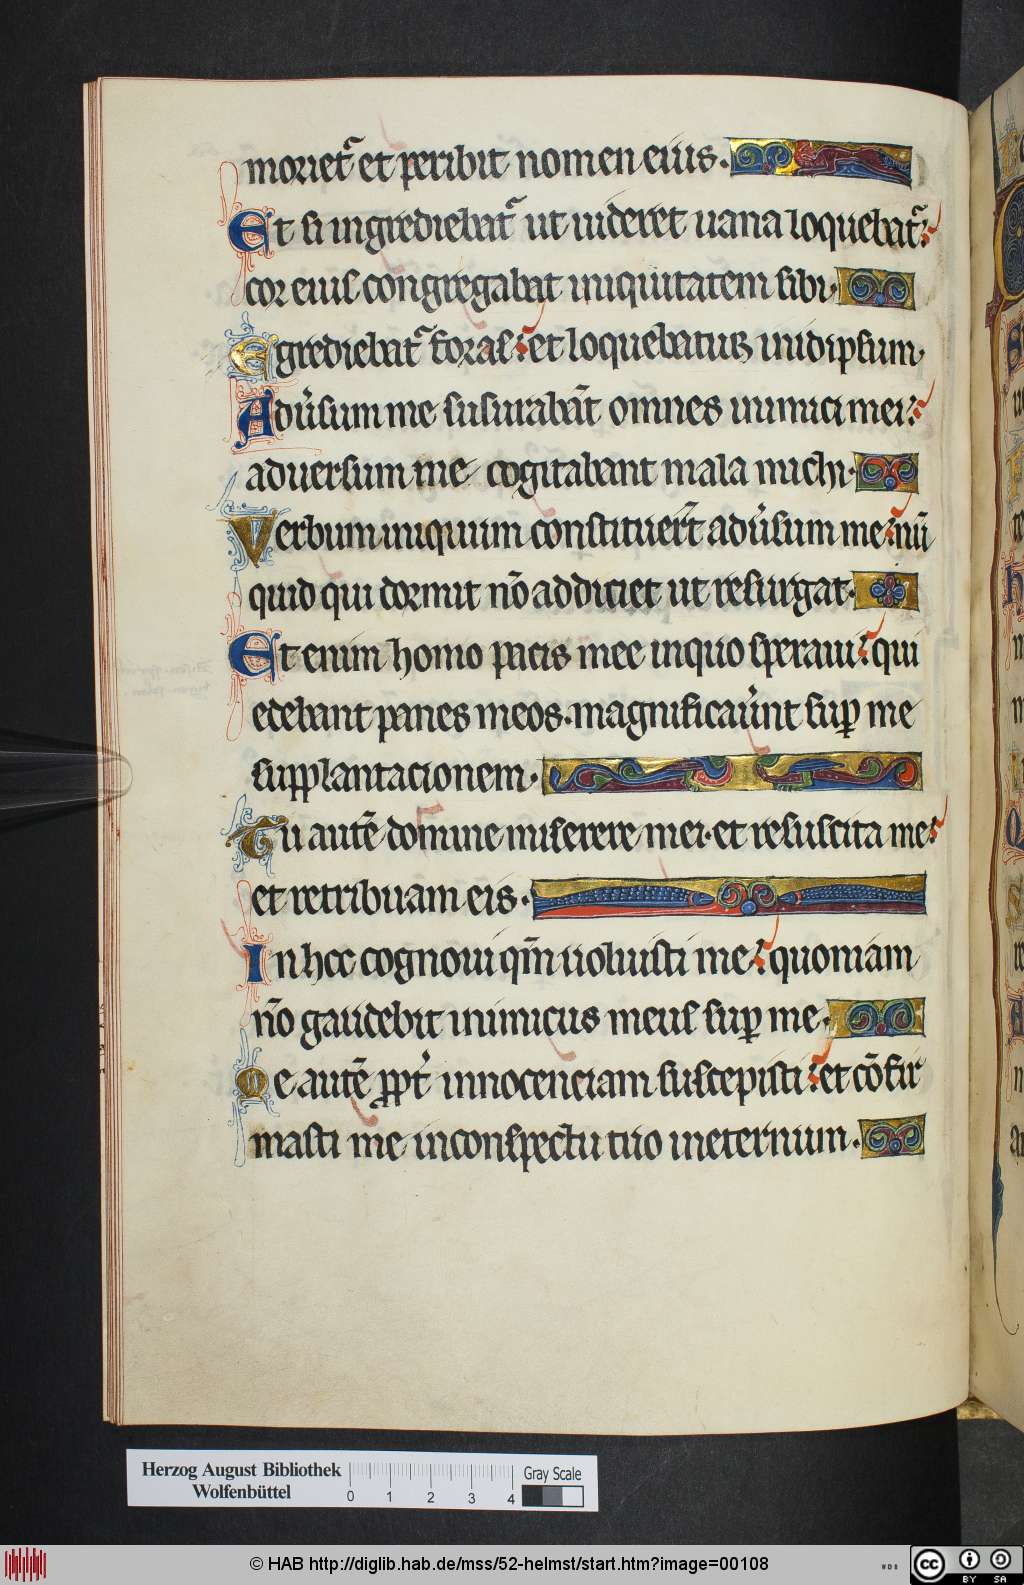 morietᷣ et peribit nomen eius.
Et si ingrediebatᷣ ut uideret uana loquebatᷣ:
cor eius congregabat iniquitatem sibi.
Egrediebatᷣ foras: et loquebatur inidipsum.
Adu̾sum me susurabāt omnes inimici mei:
aduersum me cogitabant mala michi.
Verbum iniquum constituer̄t adu̾sum me: nū
quid qui dormit nō addiciet ut resurgat.
Et enim homo pacis mee inquo speraui: qui
edebant panes meos. magnificau̾nt suꝑ me
supplantacionem.
Tu autē domine miserere mei. et resuscita me:
et retribuam eis.
In hoc cognoui qm̄ uoluisti me: quoniam
nō gaudebit inimicus meus suꝑ me.
Me autē ꝓpt̾ innocenciam suscepisti: et cōfir
masti me inconspectu tuo ineternum.
Herzog August Bibliothek
Wolfenbüttel
0 1 2 3 4
Gray Scale
© HAB http://diglib.hab.de/mss/52-helmst/start.htm?image=00108
WDB
cc BY SA